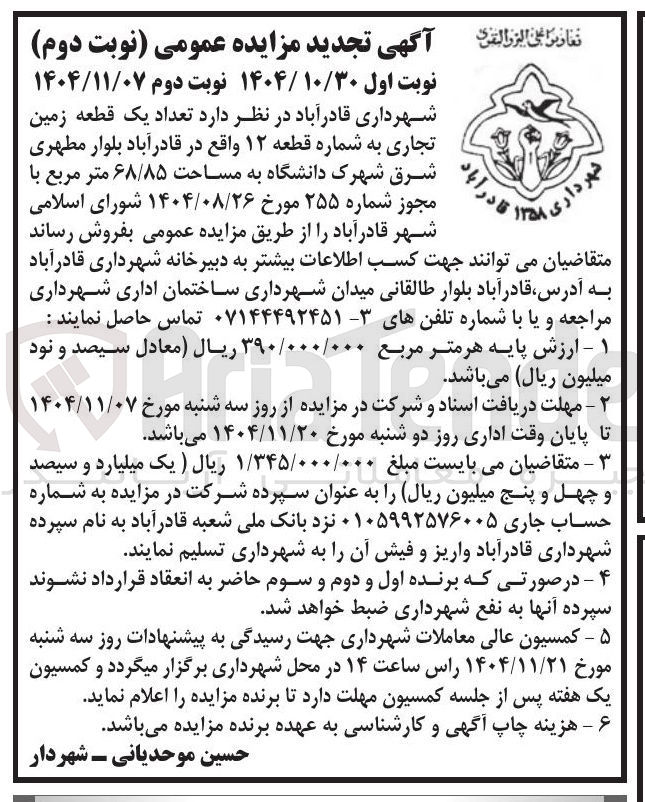 آگهی تجدید مزایده عمومی (نوبت دوم)
نوبت اول ۱۴۰۴/۱۰/۳۰ نوبت دوم ۱۴۰۴/۱۱/۰۷
شهرداری قادرآباد ۱۳۵۸
شهرداری قادرآباد در نظر دارد تعداد یک قطعه زمین
تجاری به شماره قطعه ۱۲ واقع در قادرآباد بلوار مطهری
شرق شهرک دانشگاه به مساحت ۶۸/۸۵ متر مربع با
مجوز شماره ۲۵۵ مورخ ۱۴۰۴/۰۸/۲۶ شورای اسلامی
شهر قادرآباد را از طریق مزایده عمومی بفروش رساند
متقاضیان می توانند جهت کسب اطلاعات بیشتر به دبیرخانه شهرداری قادرآباد
به آدرس،قادرآباد بلوار طالقانی میدان شهرداری ساختمان اداری شهرداری
مراجعه و یا با شماره تلفن های ۳- ۰۷۱۴۴۴۹۲۴۵۱ تماس حاصل نمایند :
۱ - ارزش پایه هرمتر مربع ۳۹۰/۰۰۰/۰۰۰ ریال (معادل سیصد و نود
میلیون ریال) می‌باشد.
۲ - مهلت دریافت اسناد و شرکت در مزایده از روز سه شنبه مورخ ۱۴۰۴/۱۱/۰۷
تا پایان وقت اداری روز دو شنبه مورخ ۱۴۰۴/۱۱/۲۰ می‌باشد.
۳ - متقاضیان می بایست مبلغ ۱/۳۴۵/۰۰۰/۰۰۰ ریال ( یک میلیارد و سیصد
و چهل و پنج میلیون ریال) را به عنوان سپرده شرکت در مزایده به شماره
حساب جاری ۰۱۰۵۹۹۲۵۷۶۰۰۵ نزد بانک ملی شعبه قادرآباد به نام سپرده
شهرداری قادرآباد واریز و فیش آن را به شهرداری تسلیم نمایند.
۴ - درصورتی که برنده اول و دوم و سوم حاضر به انعقاد قرارداد نشوند
سپرده آنها به نفع شهرداری ضبط خواهد شد.
۵ - کمسیون عالی معاملات شهرداری جهت رسیدگی به پیشنهادات روز سه شنبه
مورخ ۱۴۰۴/۱۱/۲۱ راس ساعت ۱۴ در محل شهرداری برگزار میگردد و کمسیون
یک هفته پس از جلسه کمسیون مهلت دارد تا برنده مزایده را اعلام نماید.
۶ - هزینه چاپ آگهی و کارشناسی به عهده برنده مزایده می‌باشد.
حسین موحدیانی ــ شهردار
AriaTender